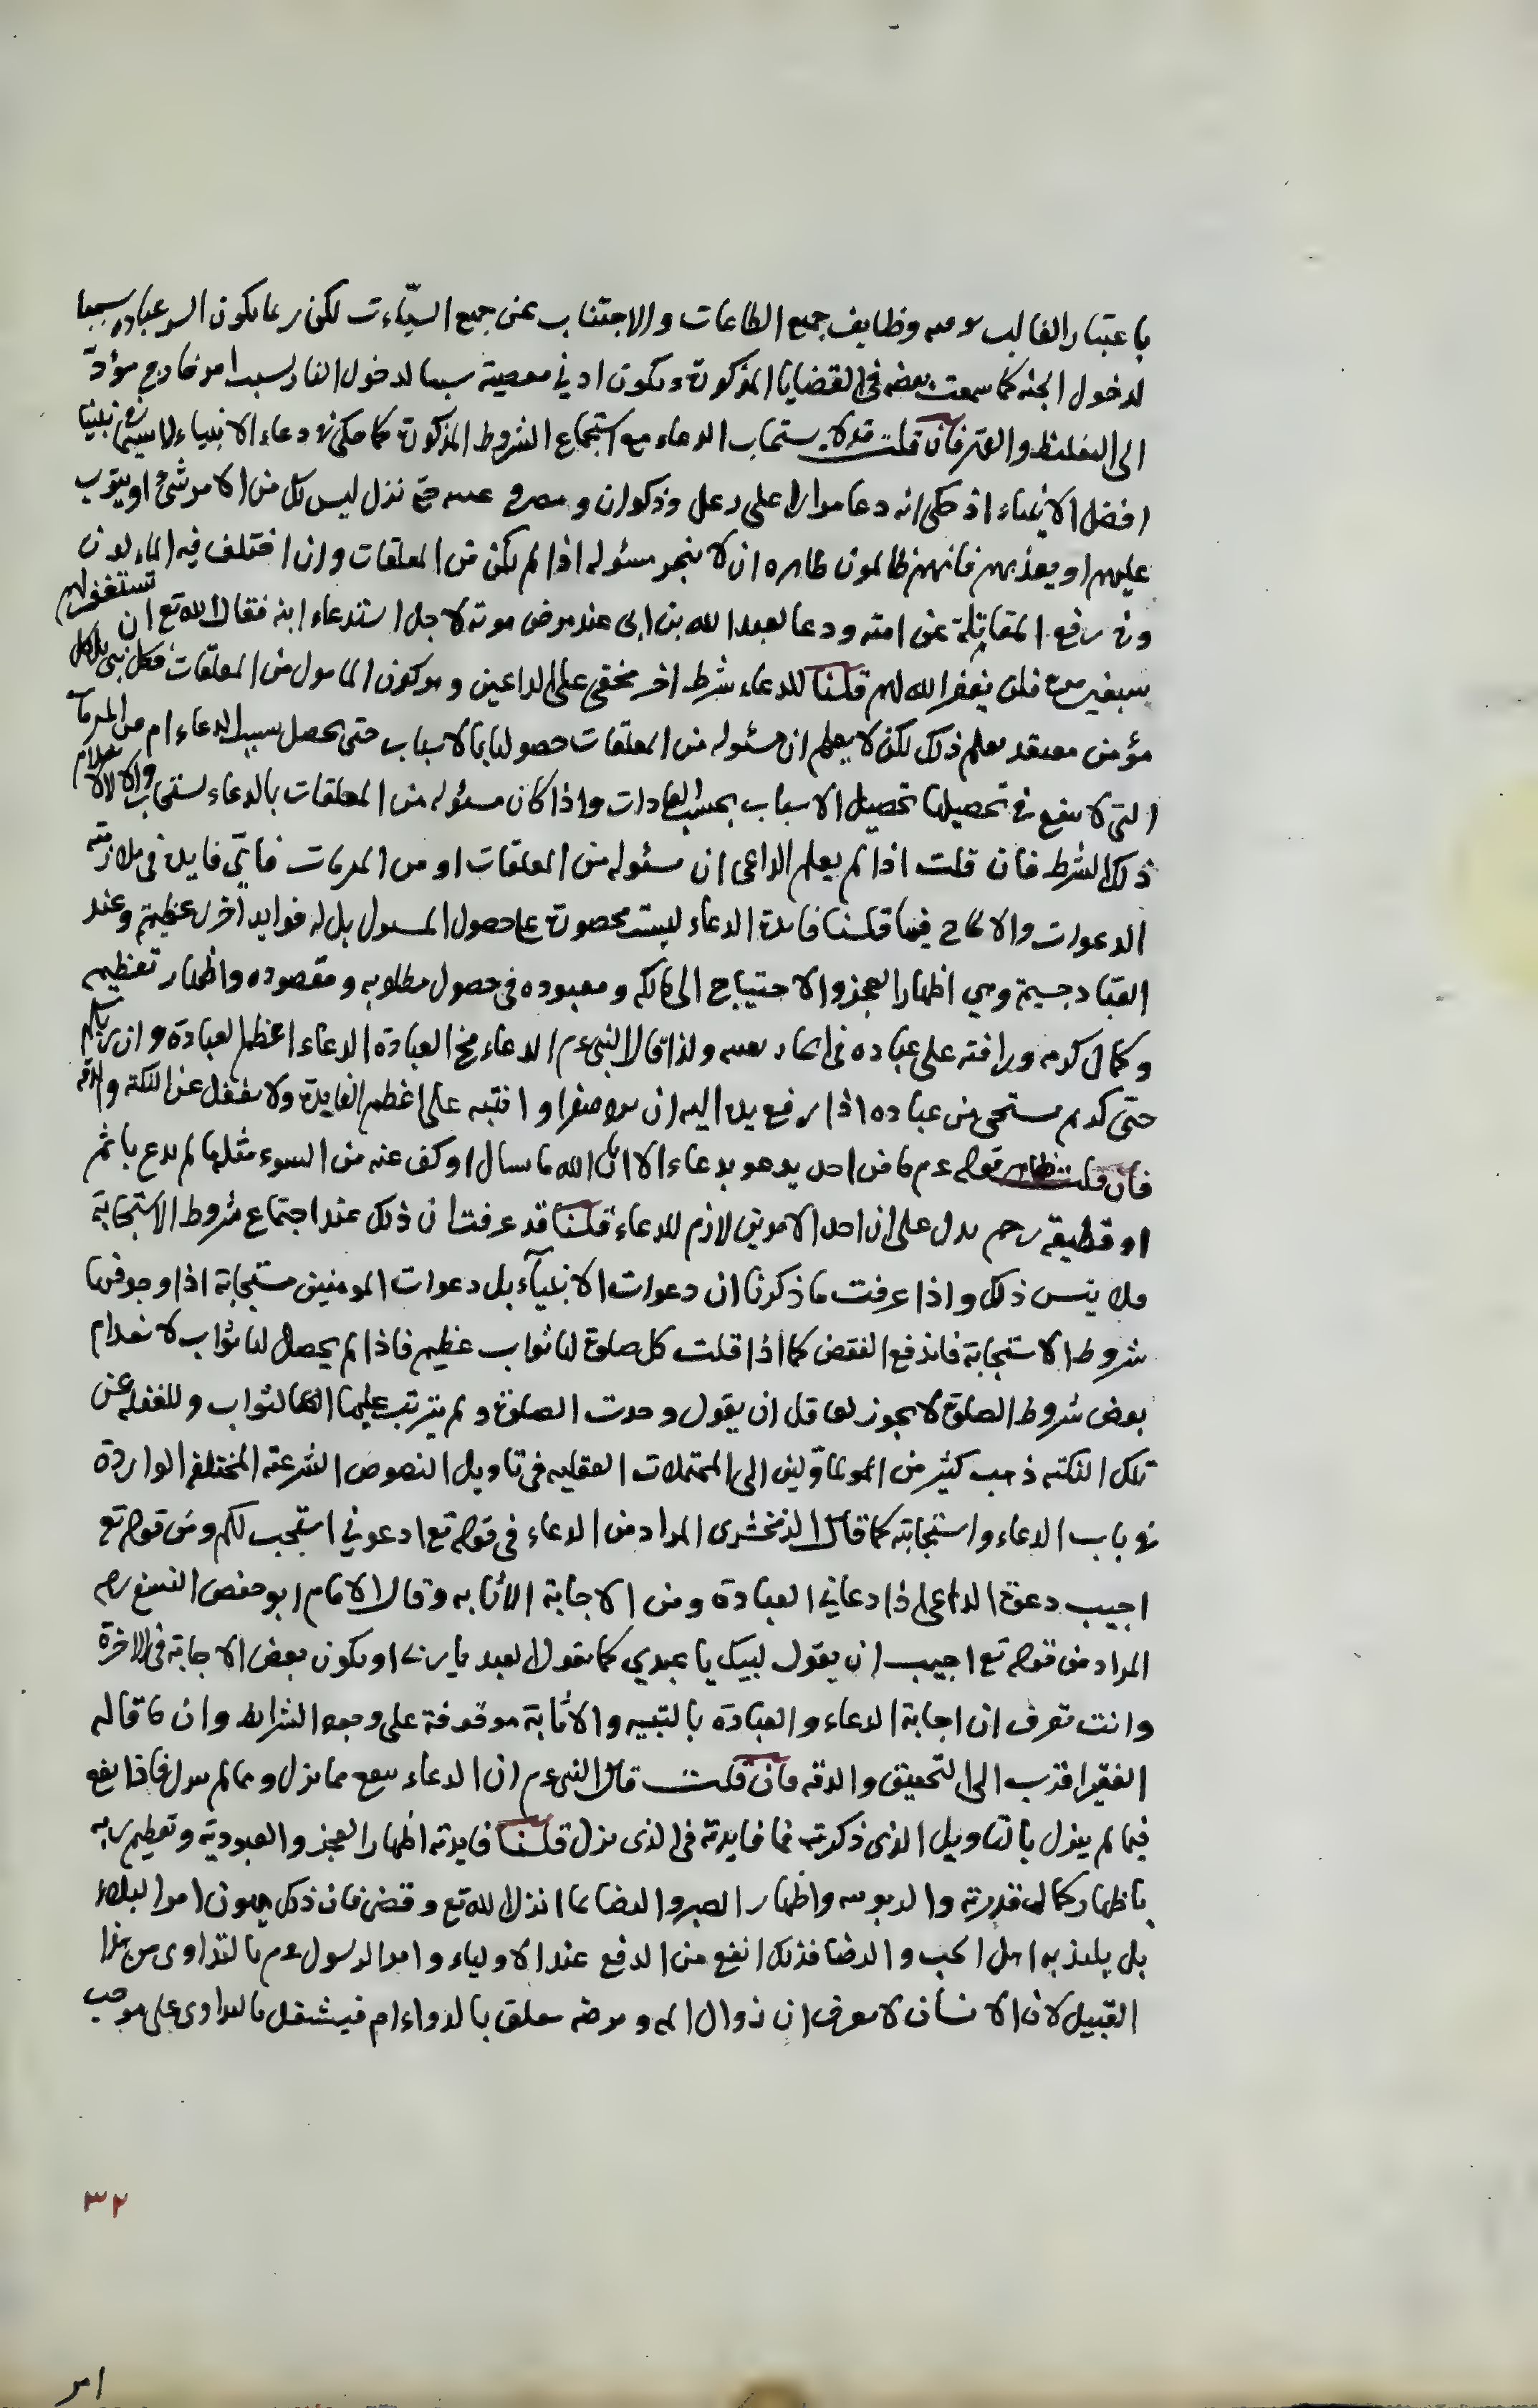 باعتبار الغالب وظايف جميع الطاعات والاجتناب عن جميع السيّاءت لكن ربما يكون ايسر عباده سببا
لدخول الجنه كما سمعت بعضه فى القضايا المذكورة ويكون ادني معصية سببا لدخول النار بسبب امر خارج مؤدّ
الى التغليظ والقهر فان قلت قد لا يستجاب الدعاء مع استجماع الشروط المذكورة كما حكى في دعاء الانبياء لا سيما نبينا
افضل الانبياء اذ حكى انه دعا مرارا على رعل وذكوان و حتى نزل ليس لك من الامر شئ او يتوب
عليهم او يعذبهم فانهم ظالمون ان لا ينجر مسئوله اذا لم يكن من المعلقات وان اختلف فيه
وفي رفع المقاتلة عن امته ودعا لعبد الله بن ابى عند مرض موته لاجل استدعاء ابنه فقال الله تع ان تستغفر لهم
سبعين مرة فلن يغفر الله لهم قلنا للدعاء شرط اخر مخفى على الداعين وهو كون المامول من المعلقات فكل نبى بل كل
مؤمن معتقد يعلم ذلك لكن لا يعلم ان مسئوله من المعلقات حصولها بالاسباب حتى يحصل بسبب الدعاء ام من المبرمات
التى لا ينفع في تحصيلها تحصيل الاسباب بحسب العادات واذا كان مسئوله من المعلقات بالدعاء يستجاب والا لا لانعدام
ذلك الشرط فان قلت اذا لم يعلم الداعى ان مسئوله من المعلقات او من المبرمات فايّ فايدة في ملازمته
الدعوات والالحاح فيها قلنا فايدة الدعاء ليست محصورة على حصول المسول بل له فوايد اخرى عظيمة وعند
العباد جسيمة وهي اظهار العجز والاحتياج الى مالكه ومعبوده فى حصول مطلوبه ومقصوده واظهار تعظيمه
وكمال كرمه ورافته على عباده فى ولذا قال النبى عم الدعاء مخ العبادة الدعاء اعظم العبادة وان ربكم
حتى كريم يستحى من عباده اذا رفع يده اليه ان صفرا وانتبه على اعظم الفايدة ولا تغفل عن النكته والدقه
فان قلت ظاهر قوله عم ما من احد يدعو بدعاء الا اتاه الله ما سال او كف عنه من السوء مثلها لم يدع باثم
او قطيعه رحم يدل على ان احد الامرين لازم للدعاء قلنا قد عرفت ان ذلك عند اجتماع شروط الاستجابة
فلا ينس ذلك واذا عرفت ما ذكرنا ان دعوات الانبيآء بل دعوات المومنين مستجابة اذا وجد فيها
شروط الاستجابة فاندفع النقض كما اذا قلت كل صلوة لها ثواب عظيم فاذا لم يحصل لها ثواب لانعدام
بعض شروط الصلوة لا يجوز لعاقل ان يقول وجدت الصلوة ولم يترتب عليها الثواب وللغفلة عن
تلك النكته ذهب كثير من المولعاوّلين الى المحتملات العقليه فى تاويل النصوص الشرعيه المختلفه الواردة
في باب الدعاء واستجابته كما قال الزمخشرى المراد من الدعاء فى قوله تع ادعوني استجب لكم ومن قوله تع
اجيب دعوة الداعى اذا دعاني العبادة ومن الاجابة الأثابه وقال الامام ابو حفص النسفى رحمه
المراد من قوله تع اجيب ان يقول لبيك يا عبدي كما يقول العبد يا رب او يكون بعض الاجابة فى الاخرة
وانت تعرف ان اجابة الدعاء والعبادة بالتلبيه والأثابة موقوفة على وجود الشرايط وان ما قاله
الفقير اقرب الى التحقيق والدقه فان قلت قال النبى عم ان الدعاء ينفع مما نزل ومما لم ينزل فاذا نفع
فيما لم ينزل بالتاويل الذى ذكرته فما فايدته فى الذى نزل قلنا فايدته اظهار العجز والعبودية وتعظيم ربه
باظهار كمال قدرته والربوبيه واظهار الصبر والرضا بما انزل الله تع وقضى فان ذلك يهون امر البلاء
بل يلتذ به اهل الحب والرضا فذلك انفع من الدفع عند الاولياء وامر الرسول عم بالتداوى من هذا
القبيل لان الانسان لا يعرف ان زوال الم ومرضه معلق بالدواء ام فيشتغل بالتداوى على موجب
٣٢
امر